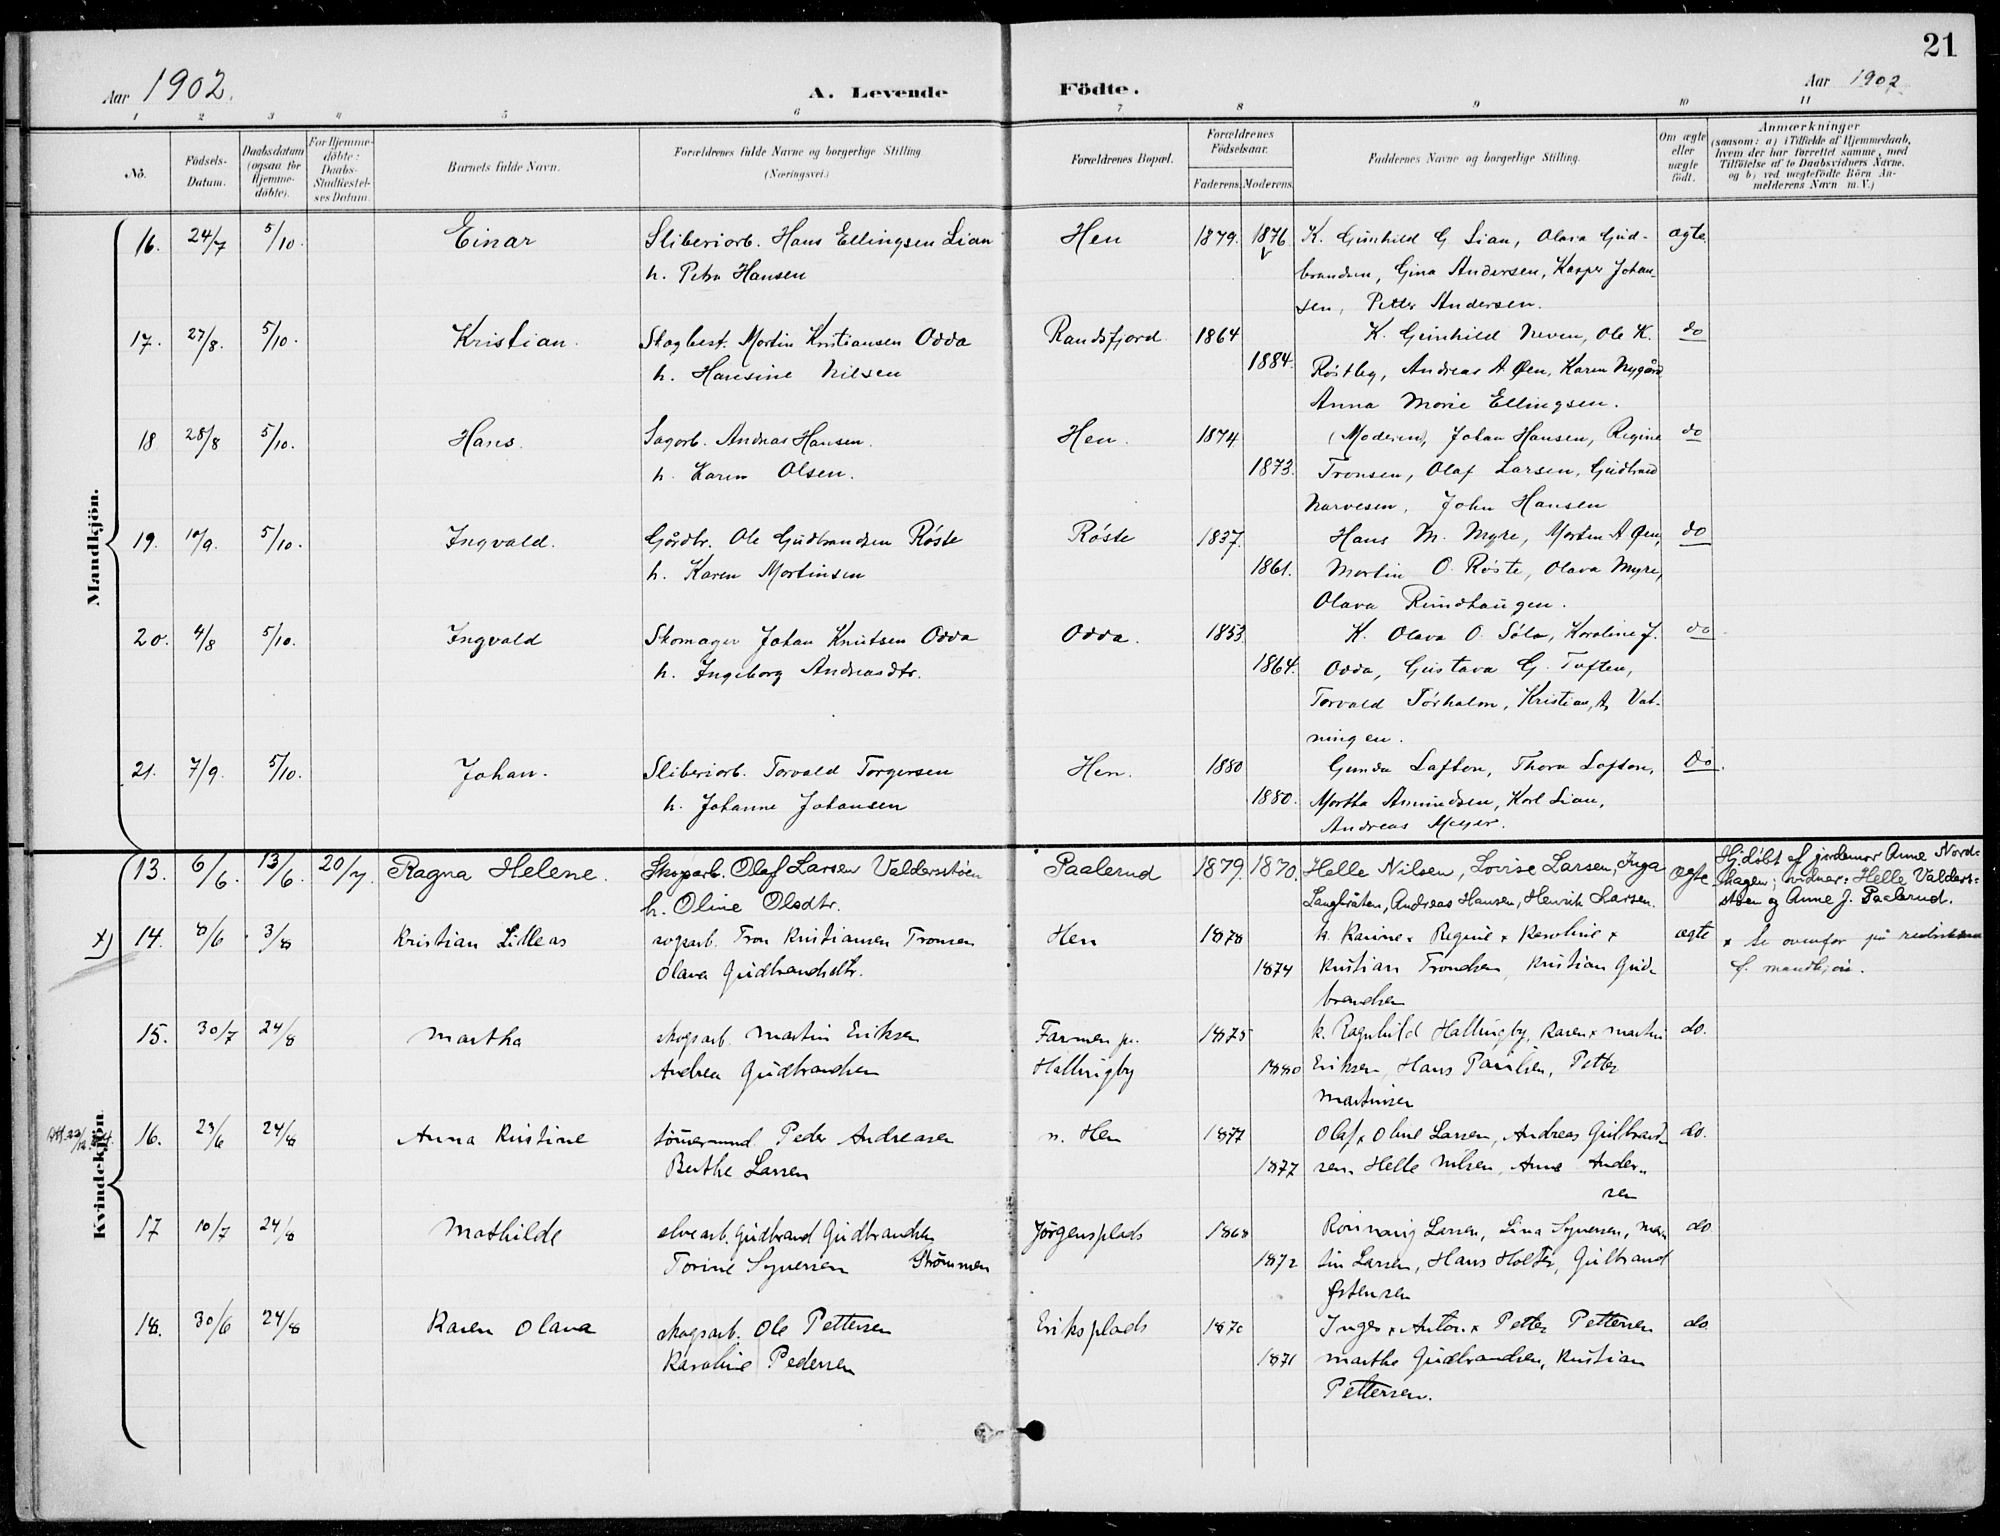 21
Aar 1902.
A. Levende Födte.
Aar 1902
1 2 3 4 5 6 7 8 9 10 11
No.
Födsels-
Datum.
Daabsdatum
(ogsaa for
Hjemme-
döbte).
For Hjemme-
döbte:
Daabs-
Stadfæstel-
ses Datum.
Barnets fulde Navn.
Forældrenes fulde Navne og borgerlige Stilling.
(Næringsvei.)
Forældrenes Bopæl.
Forældrenes
Födselsaar.
Faderens. Moderens.
Faddernes Navne og borgerlige Stilling.
Om ægte
eller
uægte
födt.
Anmærkninger
(saasom: a) i Tilfælde af Hjemmedaab,
hvem der har forrettet samme, med
Tilföielse af to Daabsvidners Navne,
og b) ved uægtefödte Börn An-
melderens Navn m. V.)
Mandkjön.
16. 24/7 5/10 Einar Sliberiarb. Hans Ellingsen Lian Hen 1879. 1876 K. Gunhild G. Lian, Olava Gud- ægte
h. Petra Hansen brandsen, Gina Andersen, Kasper Johan-
sen, Petter Andersen.
17. 27/8. 5/10. Kristian. Skogbest. Martin Kristiansen Odda Randsfjord 1864 K. Gunhild Neven, Ole K. do
h. Hansine Nilsen 1884. Røstby, Andreas A. Øen, Karen Nygård
Anna Marie Ellingsen.
18 28/8 5/10. Hans. Sagarb. Andreas Hansen. Hen. 1874 (Moderen), Johan Hansen, Regine do
h. Karen Olsen. 1873. Tronsen, Olaf Larsen, Gudbrand
Narvesen, John Hansen
19. 10/9. 5/10. Ingvald. Gårdbr. Ole Gudbrandsen Røste Røste 1837. Hans M. Myre, Morten A. Øen, do
h. Karen Mortinsen 1861. Martin O. Røste, Olava Myre,
Olava Rundhaugen.
20. 4/8 5/10. Ingvald Skomager Johan Knutsen Odda Odda. 1853 K. Olava O. Sølv, Karoline J. do
h. Ingeborg Andreasdtr. 1864. Odda, Gustava G. Tuften,
Torvald Tørhalen, Kristian A. Vat-
ningen.
21. 7/9. 5/10. Johan. Sliberiarb. Torvald Torgersen Hen. 1880 Gunda Lafton, Thora Lofton, Do.
h. Johanne Johansen 1880. Martha Amundsen, Karl Lian,
Andreas Meyer.
Kvindekjön.
13. 6/6. 13/6. 20/7. Ragna Helene. Skogarb. Olaf Larsen Valdersstøen Paalerud 1879. 1870. Helle Nilsen, Lovise Larsen, Inga ægte Hj.døbt af jordemor Anne Nord-
h. Oline Olsdtr. Langbråten, Andreas Hansen, Henrik Larsen. hagen; vidner: Helle Valders-
støen og Anne J. Paalerud.
x) 14. 8/6 3/8 Kristian Lilleas sagarb. Tron Kristiansen Tronsen Hen 1878 k. Karine x Regine x Karoline x ægte x Se ovenfor på
Olava Gudbrandsdtr. 1874 Kristian Tronsen, Kristian Gud- f. mandkjøn.
brandsen
15. 30/7 24/8 Martha skogsarb. Martin Eriksen Farmen pr. 1875 k. Ragnhild Hallingby, Karen x Martin do.
Andrea Gudbrandsen Hallingby 1880 Eriksen, Hans Paulsen, Petter
Martinsen
16. 23/6 24/8 Anna Kristine tømmermand Peder Andreasen n. Hen 1877 Olaf x Oline Larsen, Andreas Gulbrand- do.
Berthe Larsen 1877 sen, Helle Nilsen, Anne Ander-
sen
17 10/7 24/8 Mathilde elvearb. Gudbrand Gudbrandsen Jørgensplads 1868 Rønnaug Larsen, Lina Syversen, Mar- do
Torine Syversen Strømmen 1872 tin Larsen, Hans Holte, Gulbrand
Østensen
18. 30/6 24/8 Karen Olava skogsarb. Ole Pettersen Eriksplads 1870 Inger x Anton x Petter Pettersen do
Karoline Pedersen 1871 Marthe Gudbrandsen, Kristian
Pettersen.